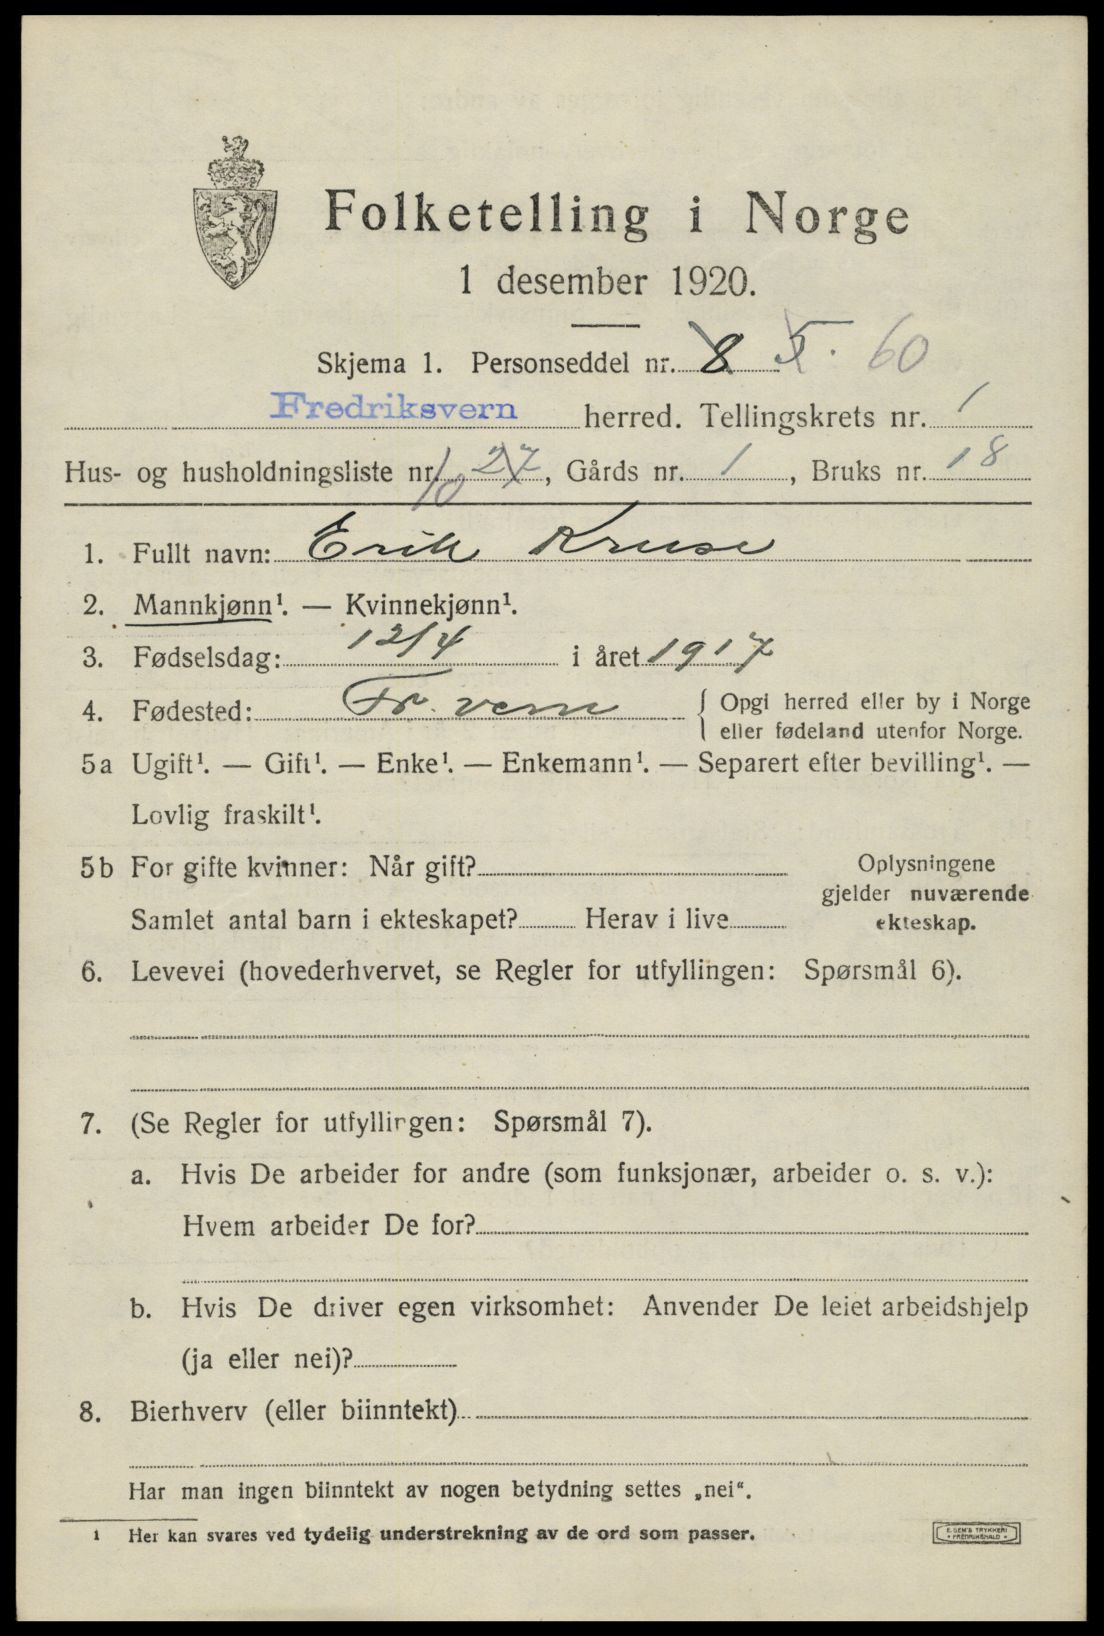 Folketelling i Norge
1 desember 1920.
Skjema 1. Personseddel nr. 8 60
Fredriksvern herred. Tellingskrets nr. 1
Hus- og husholdningsliste nr. 10 27, Gårds nr. 1, Bruks nr. 18
1. Fullt navn: Erik Kruse
2. Mannkjønn¹. — Kvinnekjønn¹.
3. Fødselsdag: 12/4 i året 1917
4. Fødested: Fr. vern { Opgi herred eller by i Norge
eller fødeland utenfor Norge.
5a Ugift¹. — Gift¹. — Enke¹. — Enkemann¹. — Separert efter bevilling¹. —
Lovlig fraskilt¹.
5b For gifte kvinner: Når gift?
Samlet antal barn i ekteskapet? Herav i live
Oplysningene
gjelder nuværende
ekteskap.
6. Levevei (hovederhvervet, se Regler for utfyllingen: Spørsmål 6).
7. (Se Regler for utfyllingen: Spørsmål 7).
a. Hvis De arbeider for andre (som funksjonær, arbeider o. s. v.):
Hvem arbeider De for?
b. Hvis De driver egen virksomhet: Anvender De leiet arbeidshjelp
(ja eller nei)?
8. Bierhverv (eller biinntekt)
Har man ingen biinntekt av nogen betydning settes „nei“.
¹ Her kan svares ved tydelig understrekning av de ord som passer.
E. SEM'S TRYKKERI
• FREDRIKSHALD •